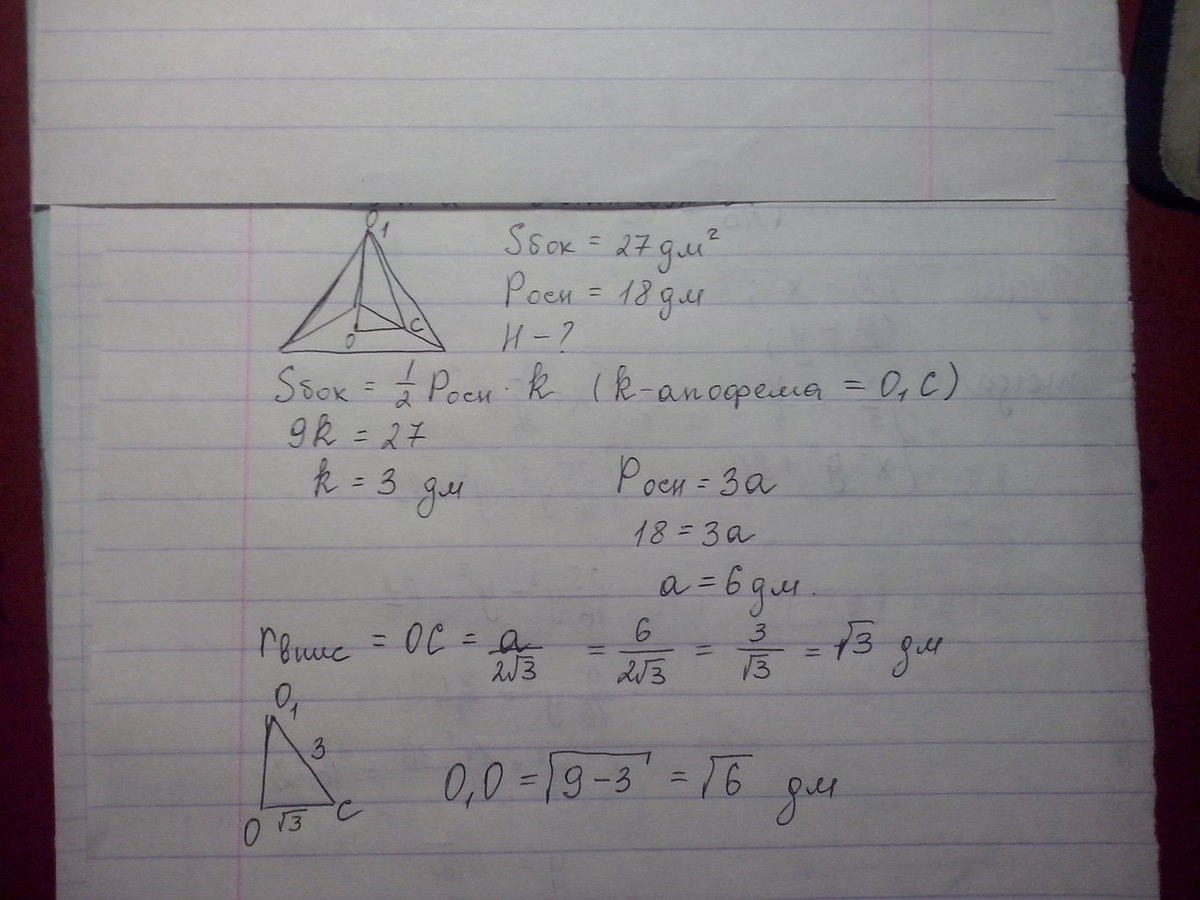 O₁
O
C
Sбок = 27 дм²
Pосн = 18 дм
H - ?
Sбок = 1/2 Pосн · k (k-апофема = O₁C)
9k = 27
k = 3 дм
Pосн = 3a
18 = 3a
a = 6 дм.
rвпис = OC = a/2√3 = 6/2√3 = 3/√3 = √3 дм
O₁
3
O
√3
C
O₁O = √9-3 = √6 дм